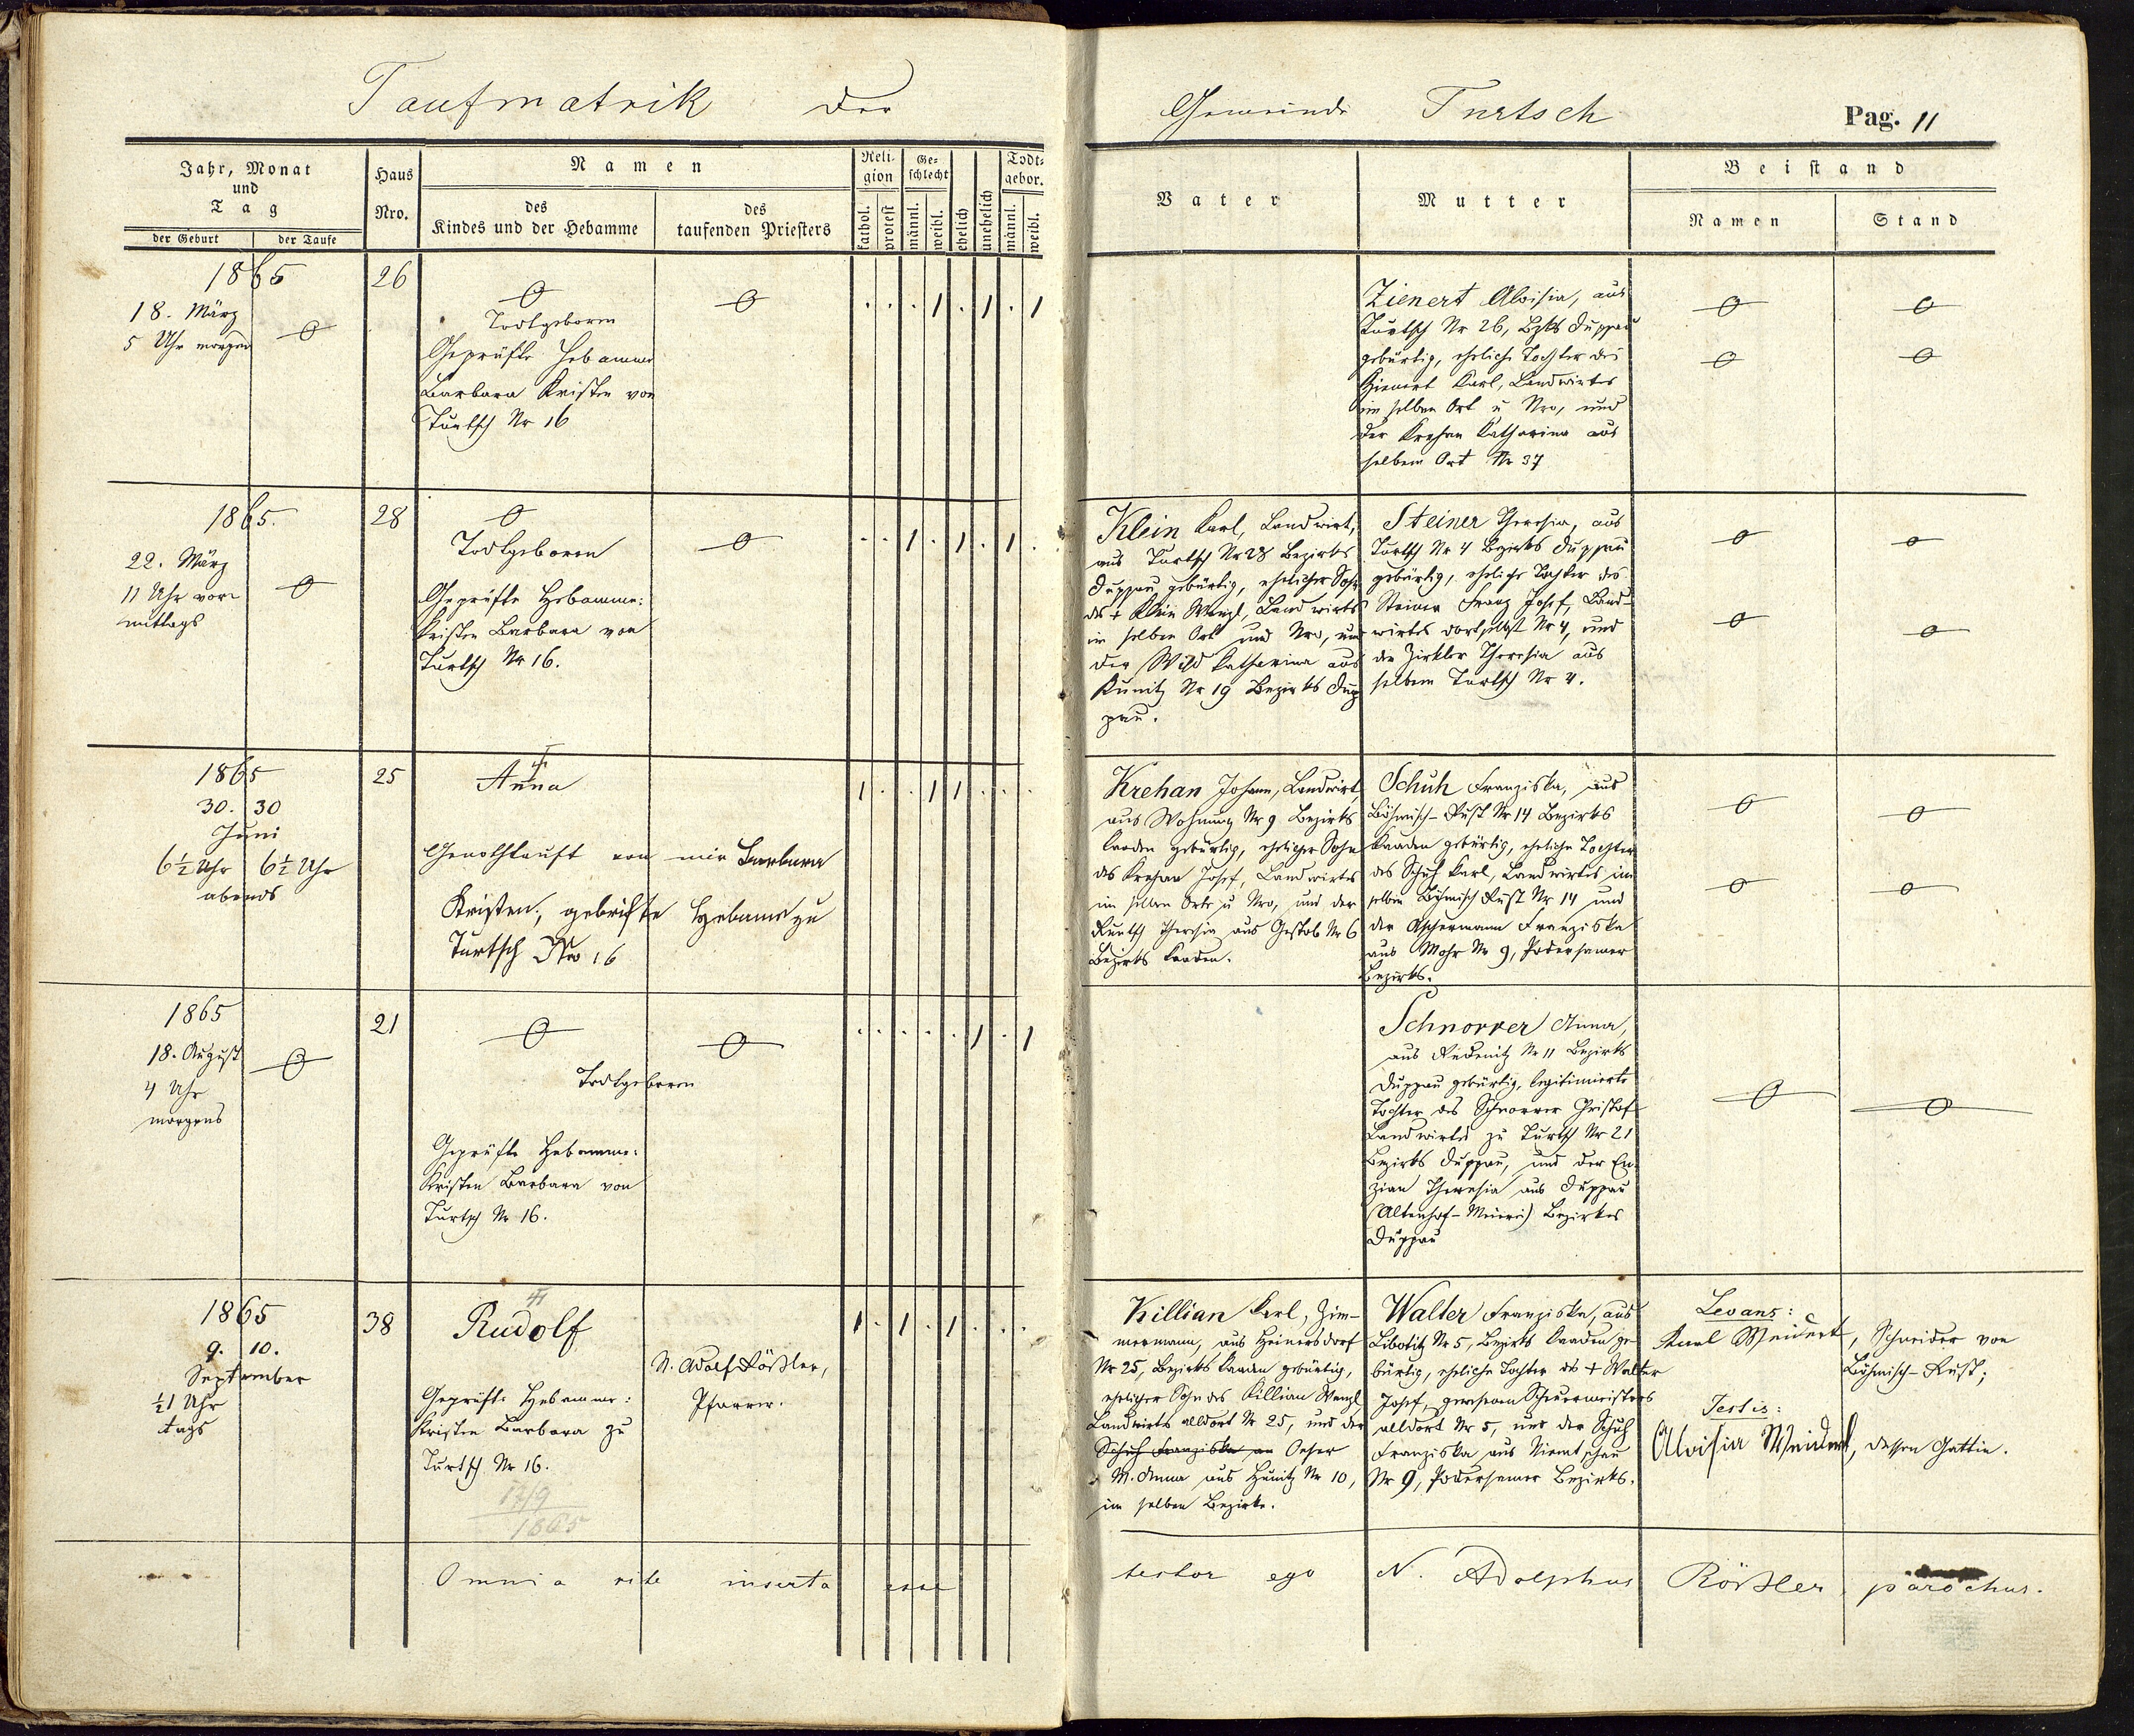 Taufmatrik der
Gemeinde Turtsch
Pag. 11
Jahr, Monat
und
Tag
der Geburt
der Taufe
Haus
Nro.
Namen
des
Kindes und der Hebamme
des
taufenden Priesters
Reli-
gion
kathol.
protest
Ge-
schlecht
männl.
weibl.
ehelich
unehelich
Todt-
gebor.
männl.
weibl.
Vater
Mutter
Beistand
Namen
Stand
1865
18. März
5 Uhr morgens
26
Todtgeboren
Geprüfte Hebamme
Barbara Kristen von
Turtsch Nr 16
1 1 1
Zienert Aloisia, aus
Turtsch Nr 26, Bzks Duppau
gebürtig, eheliche Tochter des
Zienert Karl, Landwirtes
im selben Ort u Nro, und
der Krehan Katharina aus
selbem Ort Nr 37
1865.
22. März
11 Uhr vor-
mittags
28
Todtgeboren
Geprüfte Hebamme:
Kristen Barbara von
Turtsch Nr 16.
1 1 1
Klein Karl, Landwirt,
aus Turtsch Nr 28 Bezirks
Duppau gebürtig, ehelicher Sohn
des + Klein Wenzl, Landwirts
im selben Ort und Nro, und
der Wild Katharina aus
Kunitz Nr 19 Bezirks Dup
pau.
Steiner Theresia, aus
Turtsch Nr 4 Bezirks Duppau
gebürtig, eheliche Tochter des
Steiner Franz Josef, Land-
wirtes dortselbst Nr 4, und
der Zirkler Theresia aus
selbem Turtsch Nr 4.
1865
30. 30
Juni
6½ Uhr 6½ Uhr
abends
25
Anna
Genothtauft von mir Barbara
Kristen, gebrifte Hebame zu
Turtsch Nro 16
1 1 1
Krehan Johann, Landwirt,
aus Wohnung Nr 9 Bezirks
Kaaden gebürtig, ehelicher Sohn
des Krehan Josef, Landwirtes
im selben Orte u Nro, und der
Theresia aus Gestob Nr 6
Bezirks Kaaden.
Schuh Franziska, aus
Böhmisch-Rust Nr 14 Bezirks
Kaaden gebürtig, eheliche Tochter
des Schuh Karl, Landwirtes im
selben Böhmisch Rust Nr 14 und
der Aschermann Franziska
aus Mohr Nr 9, Podersamer
Bezirks.
1865
18. August
4 Uhr
morgens
21
Todtgeboren
Geprüfte Hebamme:
Kristen Barbara von
Turtsch Nr 16.
1 1
Schnorrer Anna,
aus Rednitz Nr 11 Bezirks
Duppau gebürtig, legitimierte
Tochter des Schnorrer Christof
Landwirtes zu Turtsch Nr 21
Bezirks Duppau, und der En-
zian Theresia aus Duppau
(Altenhof-Meierei) Bezirkes
Duppau
1865
9. 10.
September
½1 Uhr
tags
38
Rudolf
Geprüfte Hebamme:
Kristen Barbara zu
Turtsch Nr 16.
17/9
1865
N. Adolf Rößler,
Pfarrer.
1 1 1
Killian Karl, Zim-
mermann, aus Heinersdorf
Nr 25, Bezirks Kaaden gebürtig,
ehelicher Sohn des Killian Wenzl
Landwirts alldort Nr 25, und der
Schuh Franziska an Oeser
M. Anna aus Hunitz Nr 10,
im selben Bezirke.
Walter Franziska, aus
Libotitz Nr 5, Bezirks Kaaden ge-
bürtig, eheliche Tochter des + Walter
Josef, gewesenen
alldort Nr 5, und der Schuh
Franziska aus Niemtschau
Nr 9, Podersamer Bezirks.
Levans:
Karl Weidert, Schneider von
Böhmisch-Rust;
Testis:
Aloisia Weidert, dessen Gattin.
Omnia rite inserta esse testor ego N. Adolphus Rößler parochus.